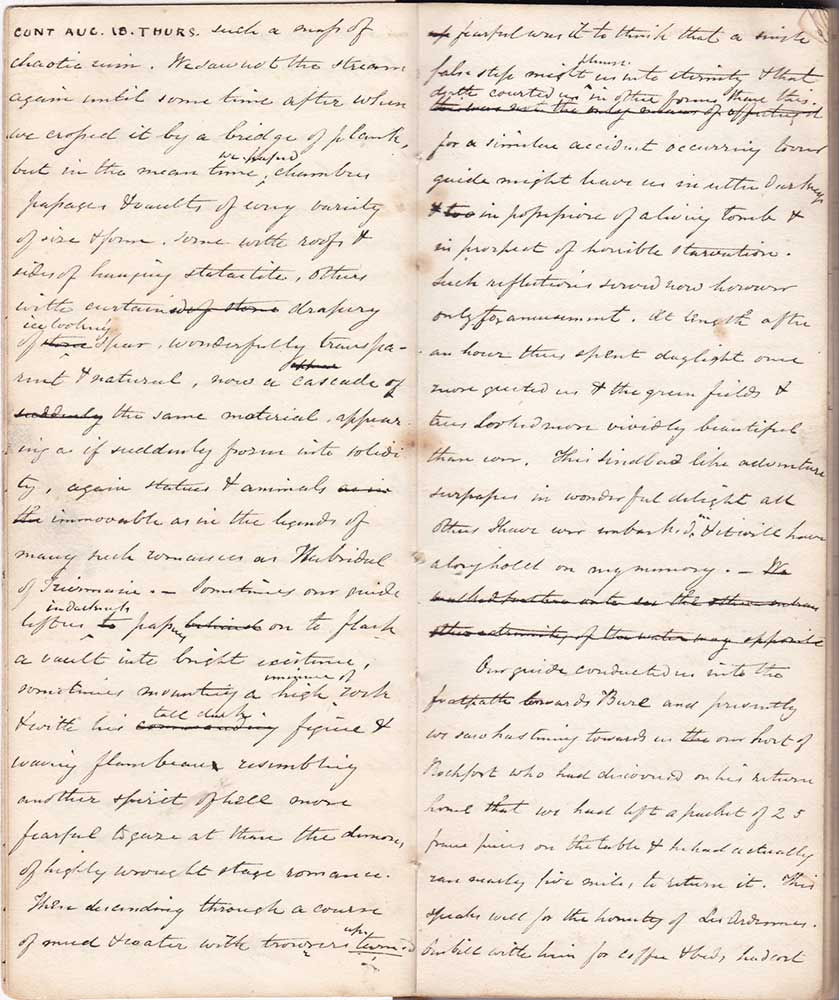 CONT AUG. 18. THURS. such a mass of
chaotic ruin. We saw not the stream
again until some time after when
we crossed it by a bridge of plank,
we passed
but in the mean time, chambers
passages & vaults of every variety
of size & form. some with roofs &
sides of hanging stalactite, others
with curtains of stone drapery
icy looking
of stone spar, wonderfully transpa-
rent & natural, now a cascade of
suddenly the same material, appear-
ing as if suddenly frozen into solidi
ty, again statues & animals as in
the immovable as in the legends of
many such romances as The bridal
of Triermain. — Sometimes our guide
in darkness
left us to passing behind on to flash
a vault into bright existence,
immense
sometimes mounting a high rock
tall dark
& with his commanding figure &
waving flambeaux resembling
another spirit of hell more
fearful to gaze at than the demons
of highly wrought stage romance.
Then descending through a course
up
of mud & water with trowsers turned
fearful was it to think that a single
plunge
false step might us into eternity & that
death courted us in other forms than this.
this was not the only means of effecting it
for a similar accident occurring to our
guide might leave us in utter darkness
& too in possession of a living tomb &
in prospect of horrible starvation.
Such reflections served now however
only for amusement. At length after
an hour thus spent daylight once
more greeted us & the green fields &
trees looked more vividly beautiful
than ever. This Sindbad like adventure
surpasses in wonderful delight all
in
others I have ever embarked, & it will have
a long hold on my memory. — We
walked further on to see the other
other extremity of the water way opposite
Our guide conducted us into the
footpath towards Bure and presently
we saw hastening towards us the our host of
Rochfort who had discovered on his return
home that we had left a packet of 25
franc pieces on the table & he had actually
ran nearly five miles, to return it. This
speaks well for the honesty of Les Ardennes.
Our bill with him for coffee & beds had cost